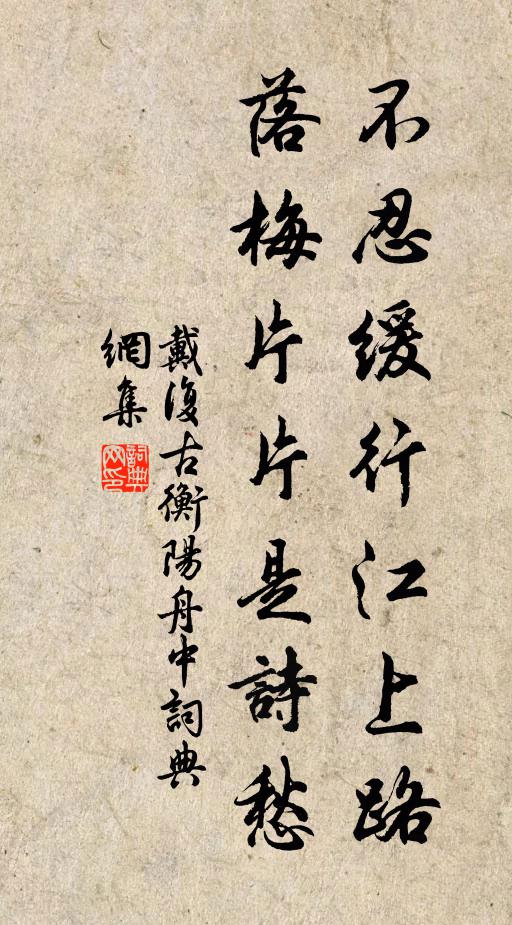 不忍緩行江上路
落梅片片是詩愁
戴復古衡陽舟中詞典
網集
詞典
网印